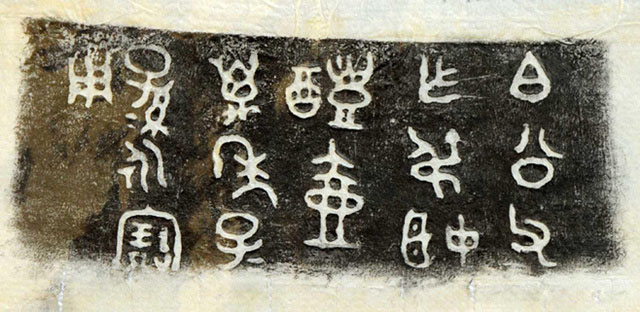 白公父
乍弔姬
醴壺
萬年子
孫永寶
用